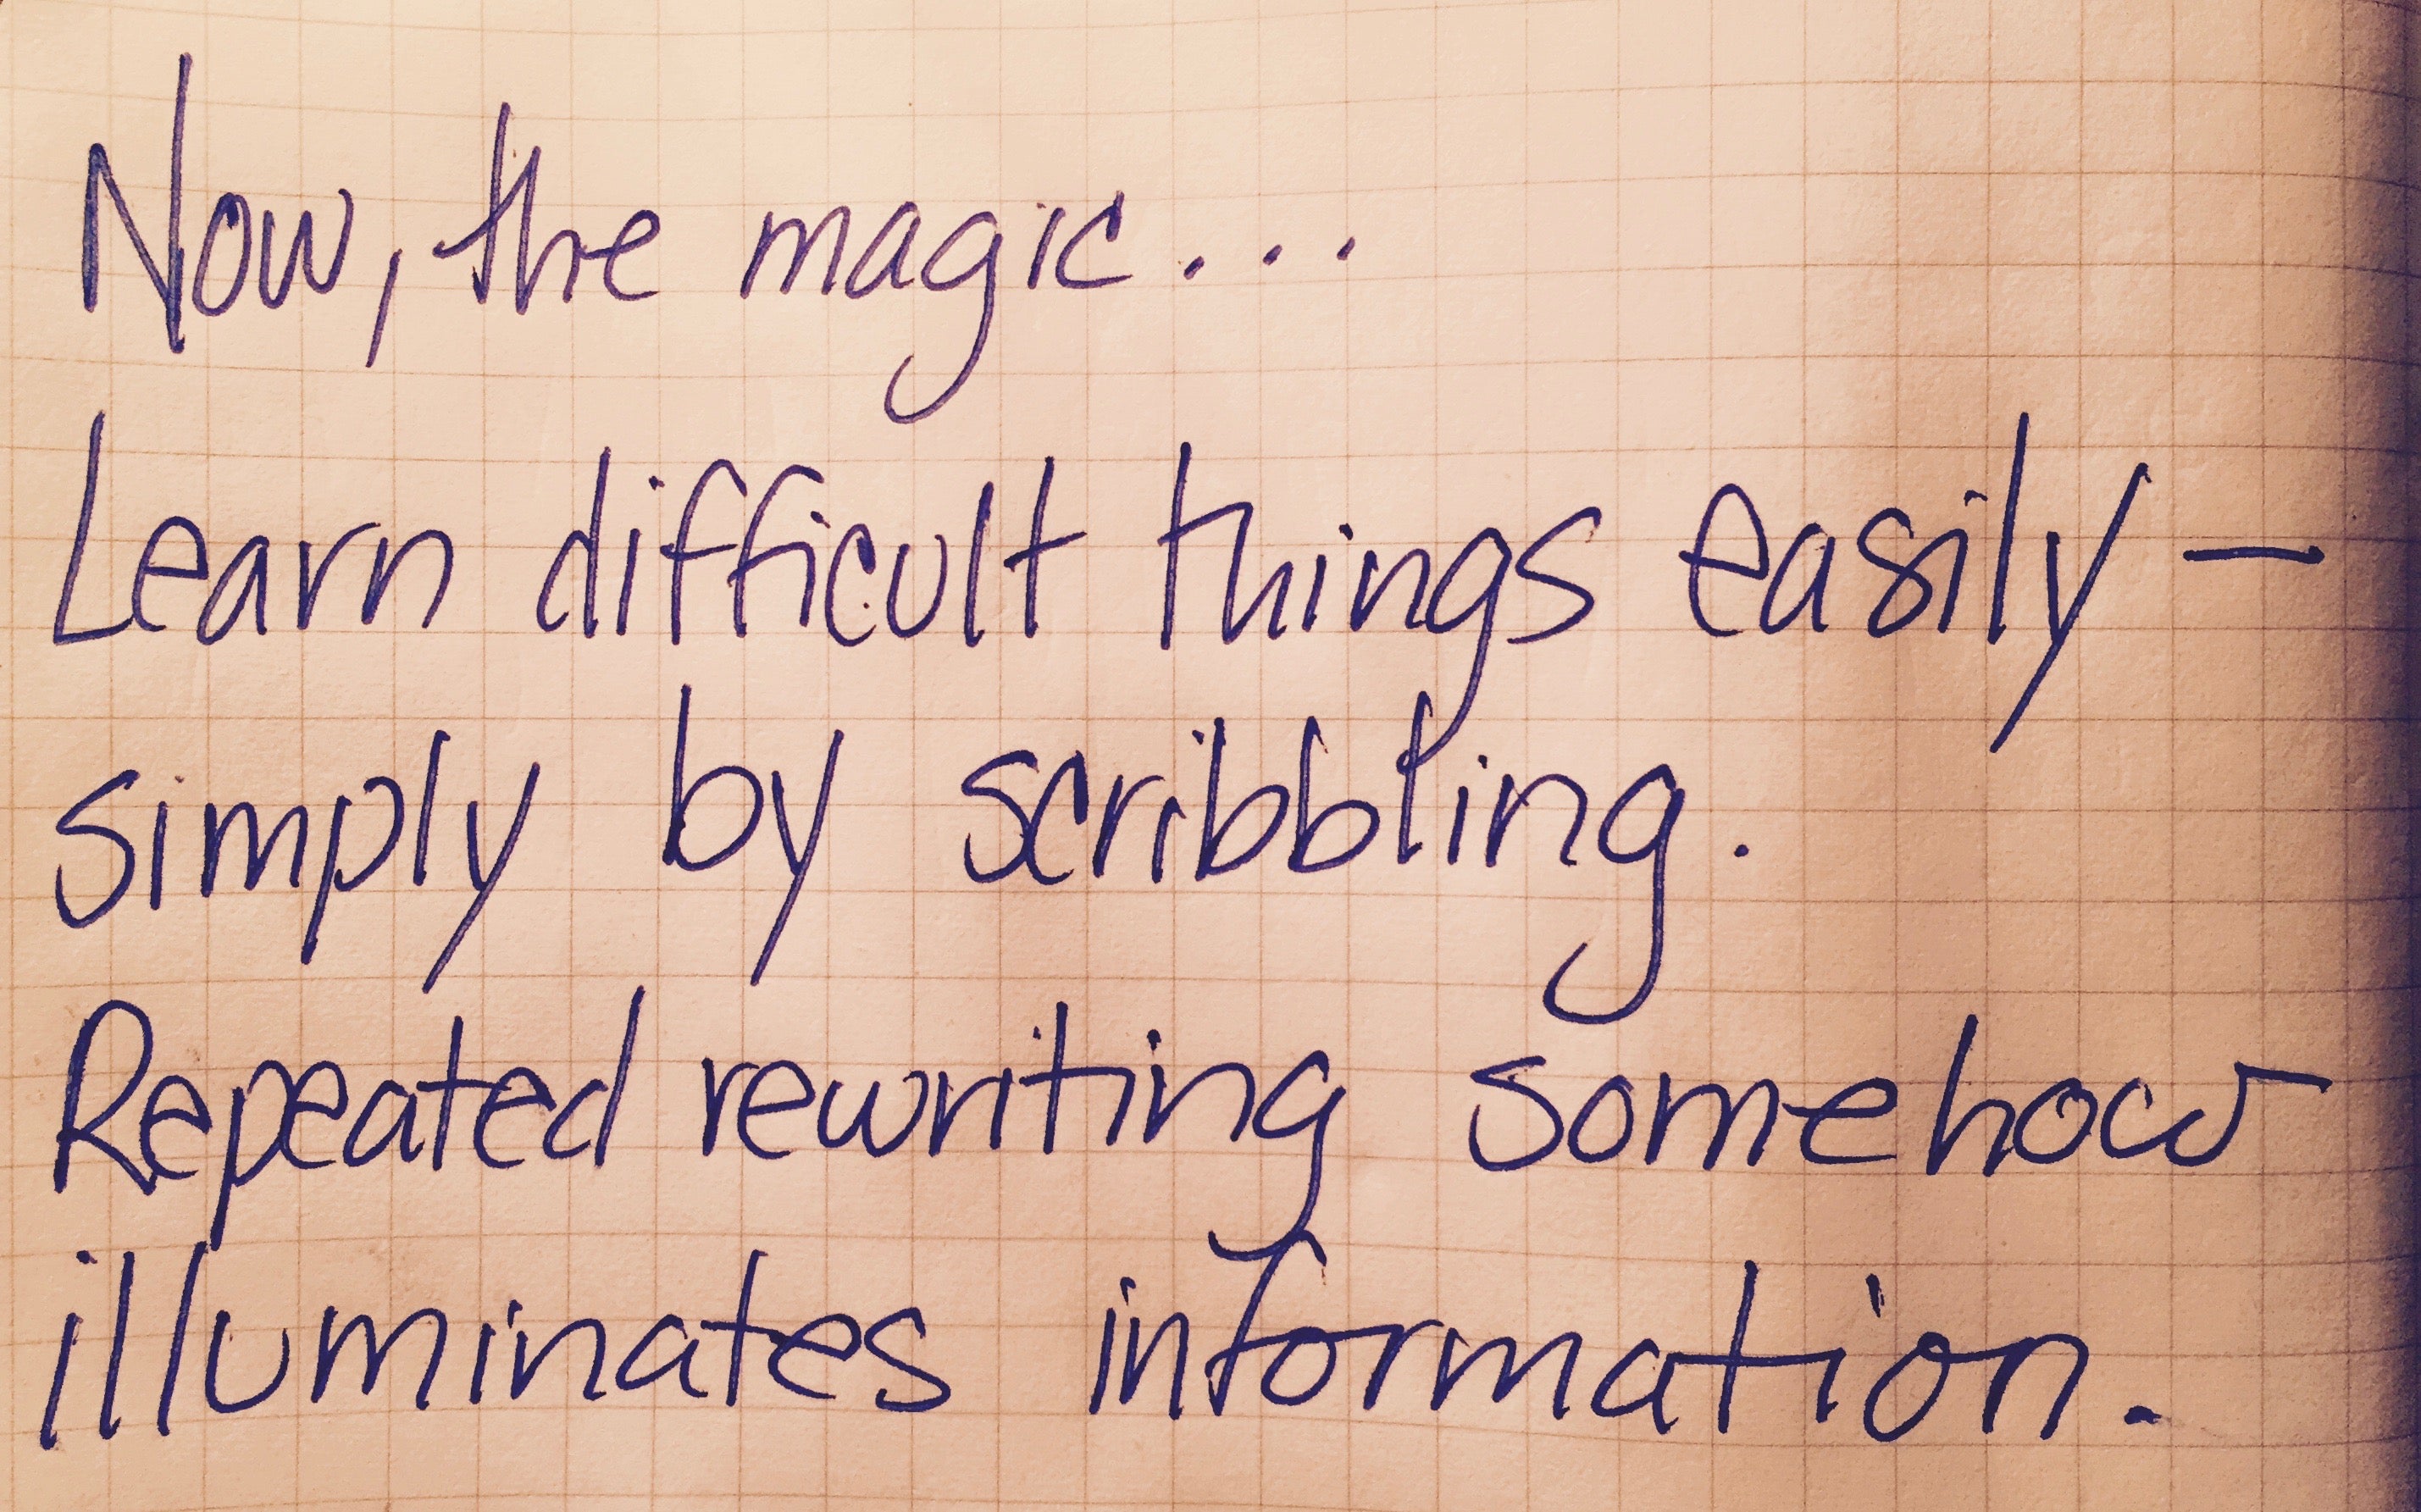 Now, the magic...
Learn difficult things easily –
simply by scribbling.
Repeated rewriting somehow
illuminates information.